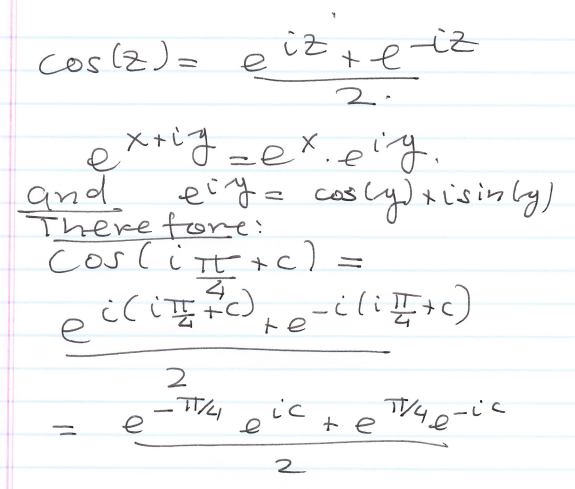 cos(z) = e^{iz} + e^{-iz}
2.
e^{x+iy} = e^x . e^{iy}.
and e^{iy} = cos(y) + i sin(y)
Therefore:
cos(i π/4 + c) =
e^{i(i π/4 + c)} + e^{-i(i π/4 + c)}
2
= e^{-π/4} e^{ic} + e^{π/4} e^{-ic}
2